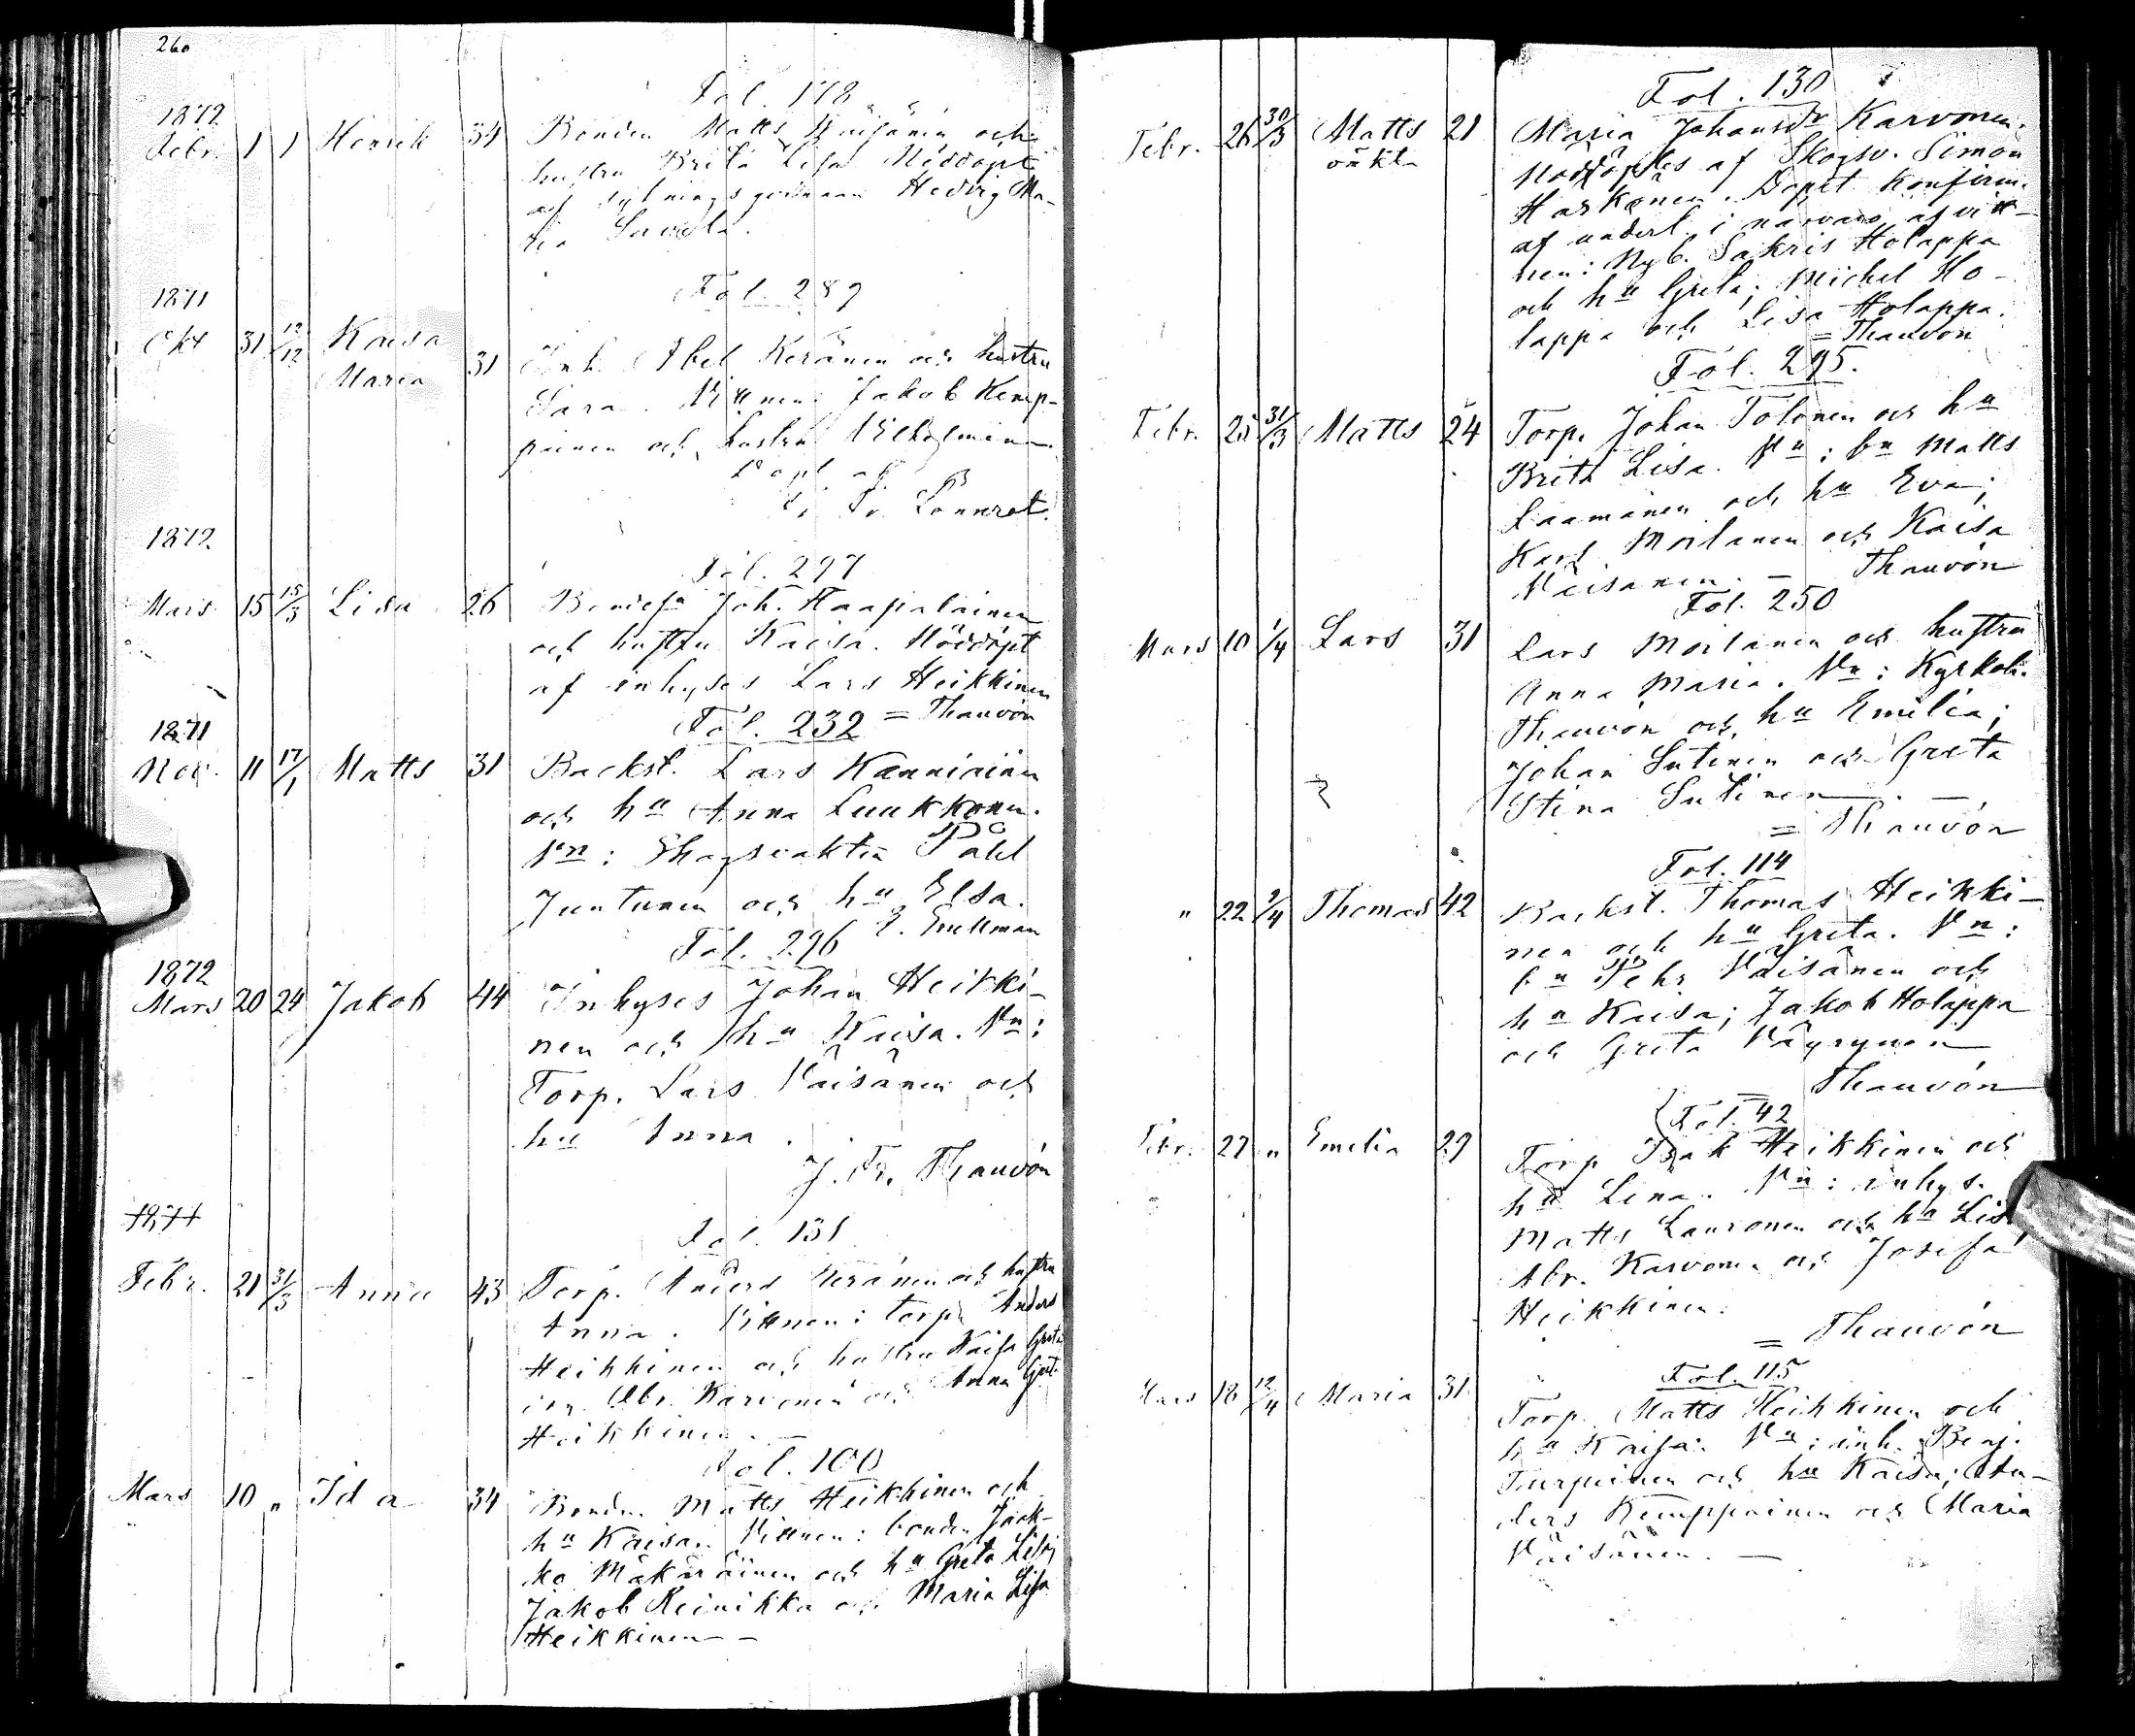 260
Fol. 178
1872
Febr. 1 1 Henrik 34 Bonden Matts Väisänen och
hustru Brita Lisa Nöddöpt
af sytningsgumman Hedvig Ma-
ria Savela.
Fol. 289
1871
Okt 31 12/12 Kaisa
Maria 31 Inh. Abel Keränen och hustru
Sara. Vittnen: Jakob Kemp-
painen och hustru Vilhelmina.
Döpt af
Lönnrot.
1872
Fol. 297
Mars 15 15/3 Lisa 26 Bondesn Joh. Haapalainen
och hustru Kaisa. Nöddöpt
af inhyses Lars Heikkinen
Fol. 232 = Thauvón
1871
Nov. 11 17/1 Matts 31 Backst. Lars Kanniainen
och hu Anna Luukkonen.
Vn: Skogsvakten Påhl
Juntunen och hu Elsa.
Fol. 296 E. Snellman
1872
Mars 20 24 Jakob 44 Inhyses Johan Heikki-
nen och hu Kaisa. Vn:
Torp. Lars Väisänen och
hu Anna.
J. Fr. Thauvón
1871
Fol. 131
Febr. 21 31/3 Anna 43 Torp. Anders Keränen och hustru
Anna. Vittnen: torp. Anders
Heikkinen och hustru Kaisa Greta
Abr. Karvonen och Anna Gret.
Heikkinen. —
Fol. 100
Mars 10 " Ida 34 Bonden Matts Heikkinen och
hu Kaisa. Vittnen: bonden Jaak-
ko Mäkäräinen och hu Greta Lisa;
Jakob Reinikka och Maria Lisa
Heikkinen —
Fol. 130
Febr. 26 30/3 Matts 21 Maria Johansdr Karvonen.
oäkta Nöddöptes af Skogsv. Simon
Harkönen. Dopet konfirm.
af undert. i närvaro af vitt-
nen: Nyb. Sakris Holappa
och hu Greta; Michel Ho-
lappa och Lisa Holappa.
= Thauvón
Fol. 295.
Febr. 25 31/3 Matts 24 Torp. Johan Tolonen och hu
Brita Lisa. Vn: bn Matts
Laamanen och hu Eva;
Karl Moilanen och Kaisa
Väisänen. — Thauvón
Fol. 250
Mars 10 1/4 Lars 31 Lars Moilanen och hustru
Anna Maria. Vn: Kyrkoh.
Thauvón och hu Emilia;
Johan Sutinen och Greta
Stina Sutinen. —
= Thauvón
Fol. 114
" 22 2/4 Thomas 42 Backst. Thomas Heikki-
nen och hu Greta. Vn:
bn Pehr Väisänen och
hu Kaisa; Jakob Holappa
och Greta Väyrynen
= Thauvón
Fol. 42
Febr. 27 " Emelia 29 Torp Isak Heikkinen och
hu Lena. Vn: inhys.
Matts Lauronen och hu Lisa
Abr. Karvonen och Josefa
Heikkinen.
= Thauvón
Fol. 115
Mars 18 12/4 Maria 31 Torp. Matts Heikkinen och
hu Kaisa. Vn: inh. Benj.
Turpeinen och hu Kaisa; An-
ders Kemppainen och Maria
Väisänen. —